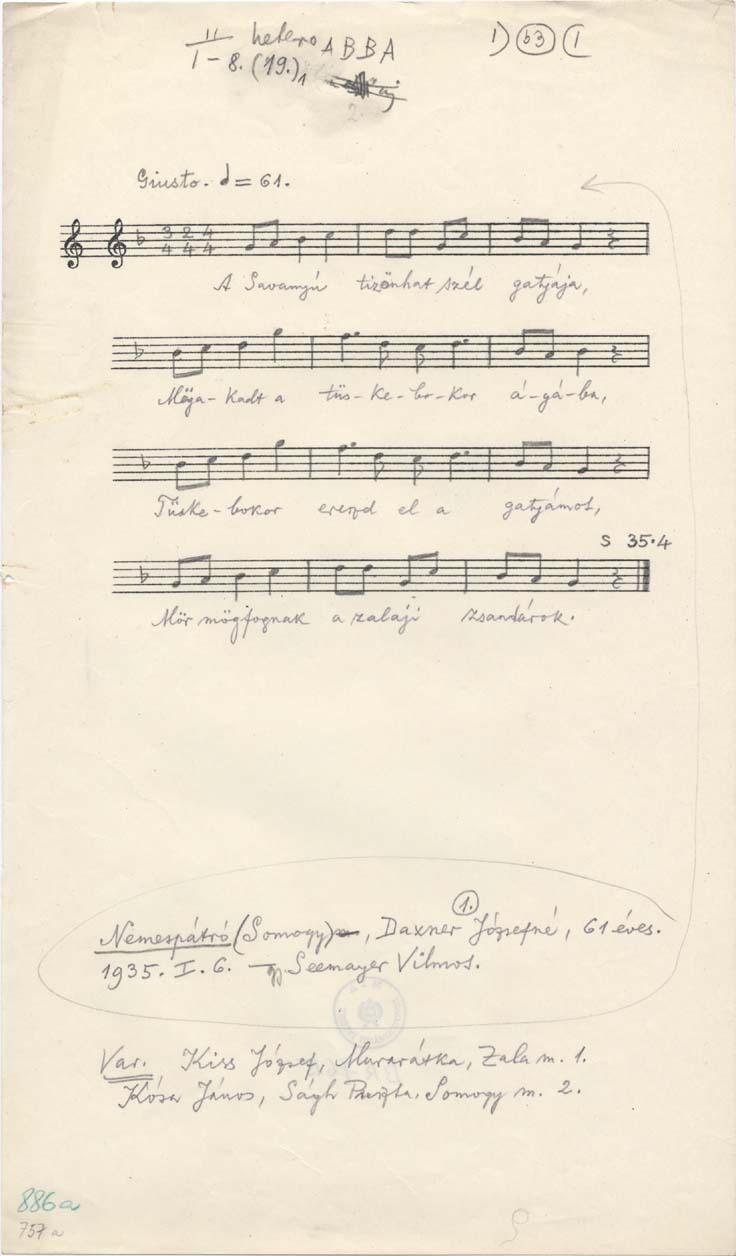 II hetero ABBA 1) (b3) (1
I-8. (19.)1
2.
Giusto. d = 61.
3 2 4
4 4 4
A Savanyú tizönhat szél gatjája,
Möga-kadt a tüs-ke-bo-kor á-gá-ba,
Tüske-bokor ereszd el a gatjámot,
S 35.4
Mör mögfognak a zalaji zsandárok.
1.
Nemespátró (Somogy), Daxner Józsefné, 61 éves.
1935. I. 6. Seemayer Vilmos.
Var. Kiss József, Murarátka, Zala m. 1.
Kósa János, Ságh Puszta, Somogy m. 2.
886a
757a